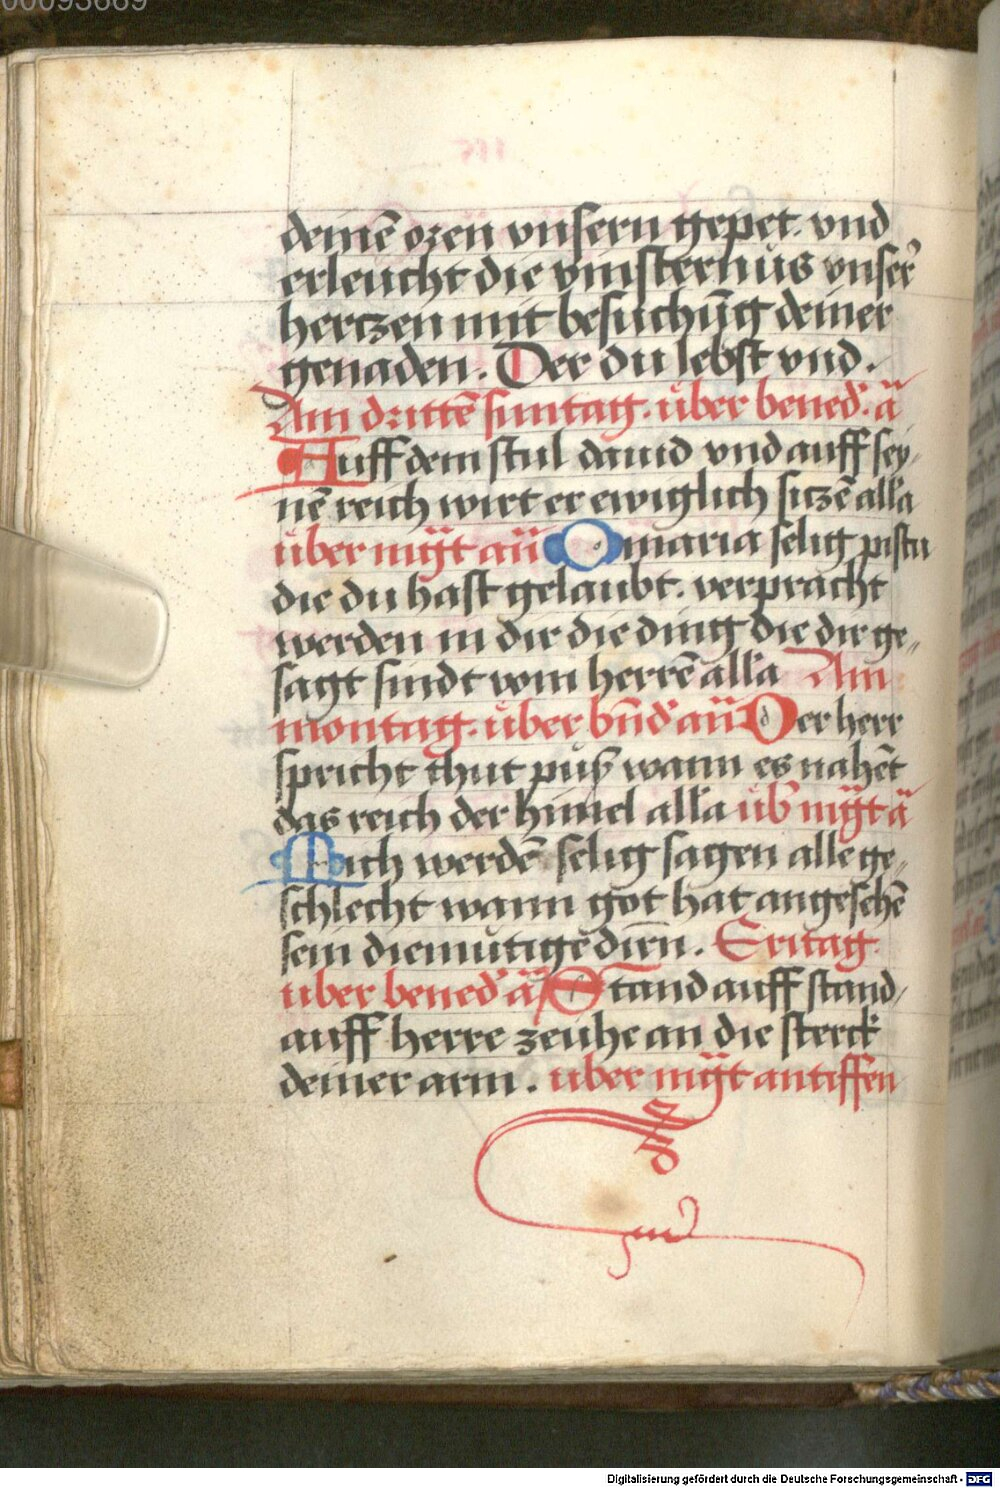 00093669
deinē oren vnsern gepet. vnd
erleucht die vinsternůs vnser̕
hertzen mit besuchūg deiner
genaden. Der du lebst vnd.
Am drittē suntag. über bened̕. ā
Auff dem stul dauid vnd auff sey,
nē reich wirt er ewiglich sitzē alla
über mgt añ O maria selig pistu
die du hast gelaubt. verpracht
werden in dir die ding die dir ge„
sagt sindt vom herrē alla Am
montag. über bñd̕ añ Der herr
spricht thut puß wann es nahēt
das reich der himel alla üb̕ mgt ā
Mich werdē selig sagen alle ge„
schlecht wann got hat angesehē
sein diemůtige dirn. Eritag.
uber bened̕ ā Stand auff stand,
auff herre zeuhe an die sterck
deiner arm. uber mgt antiffen
Digitalisierung gefördert durch die Deutsche Forschungsgemeinschaft - DFG